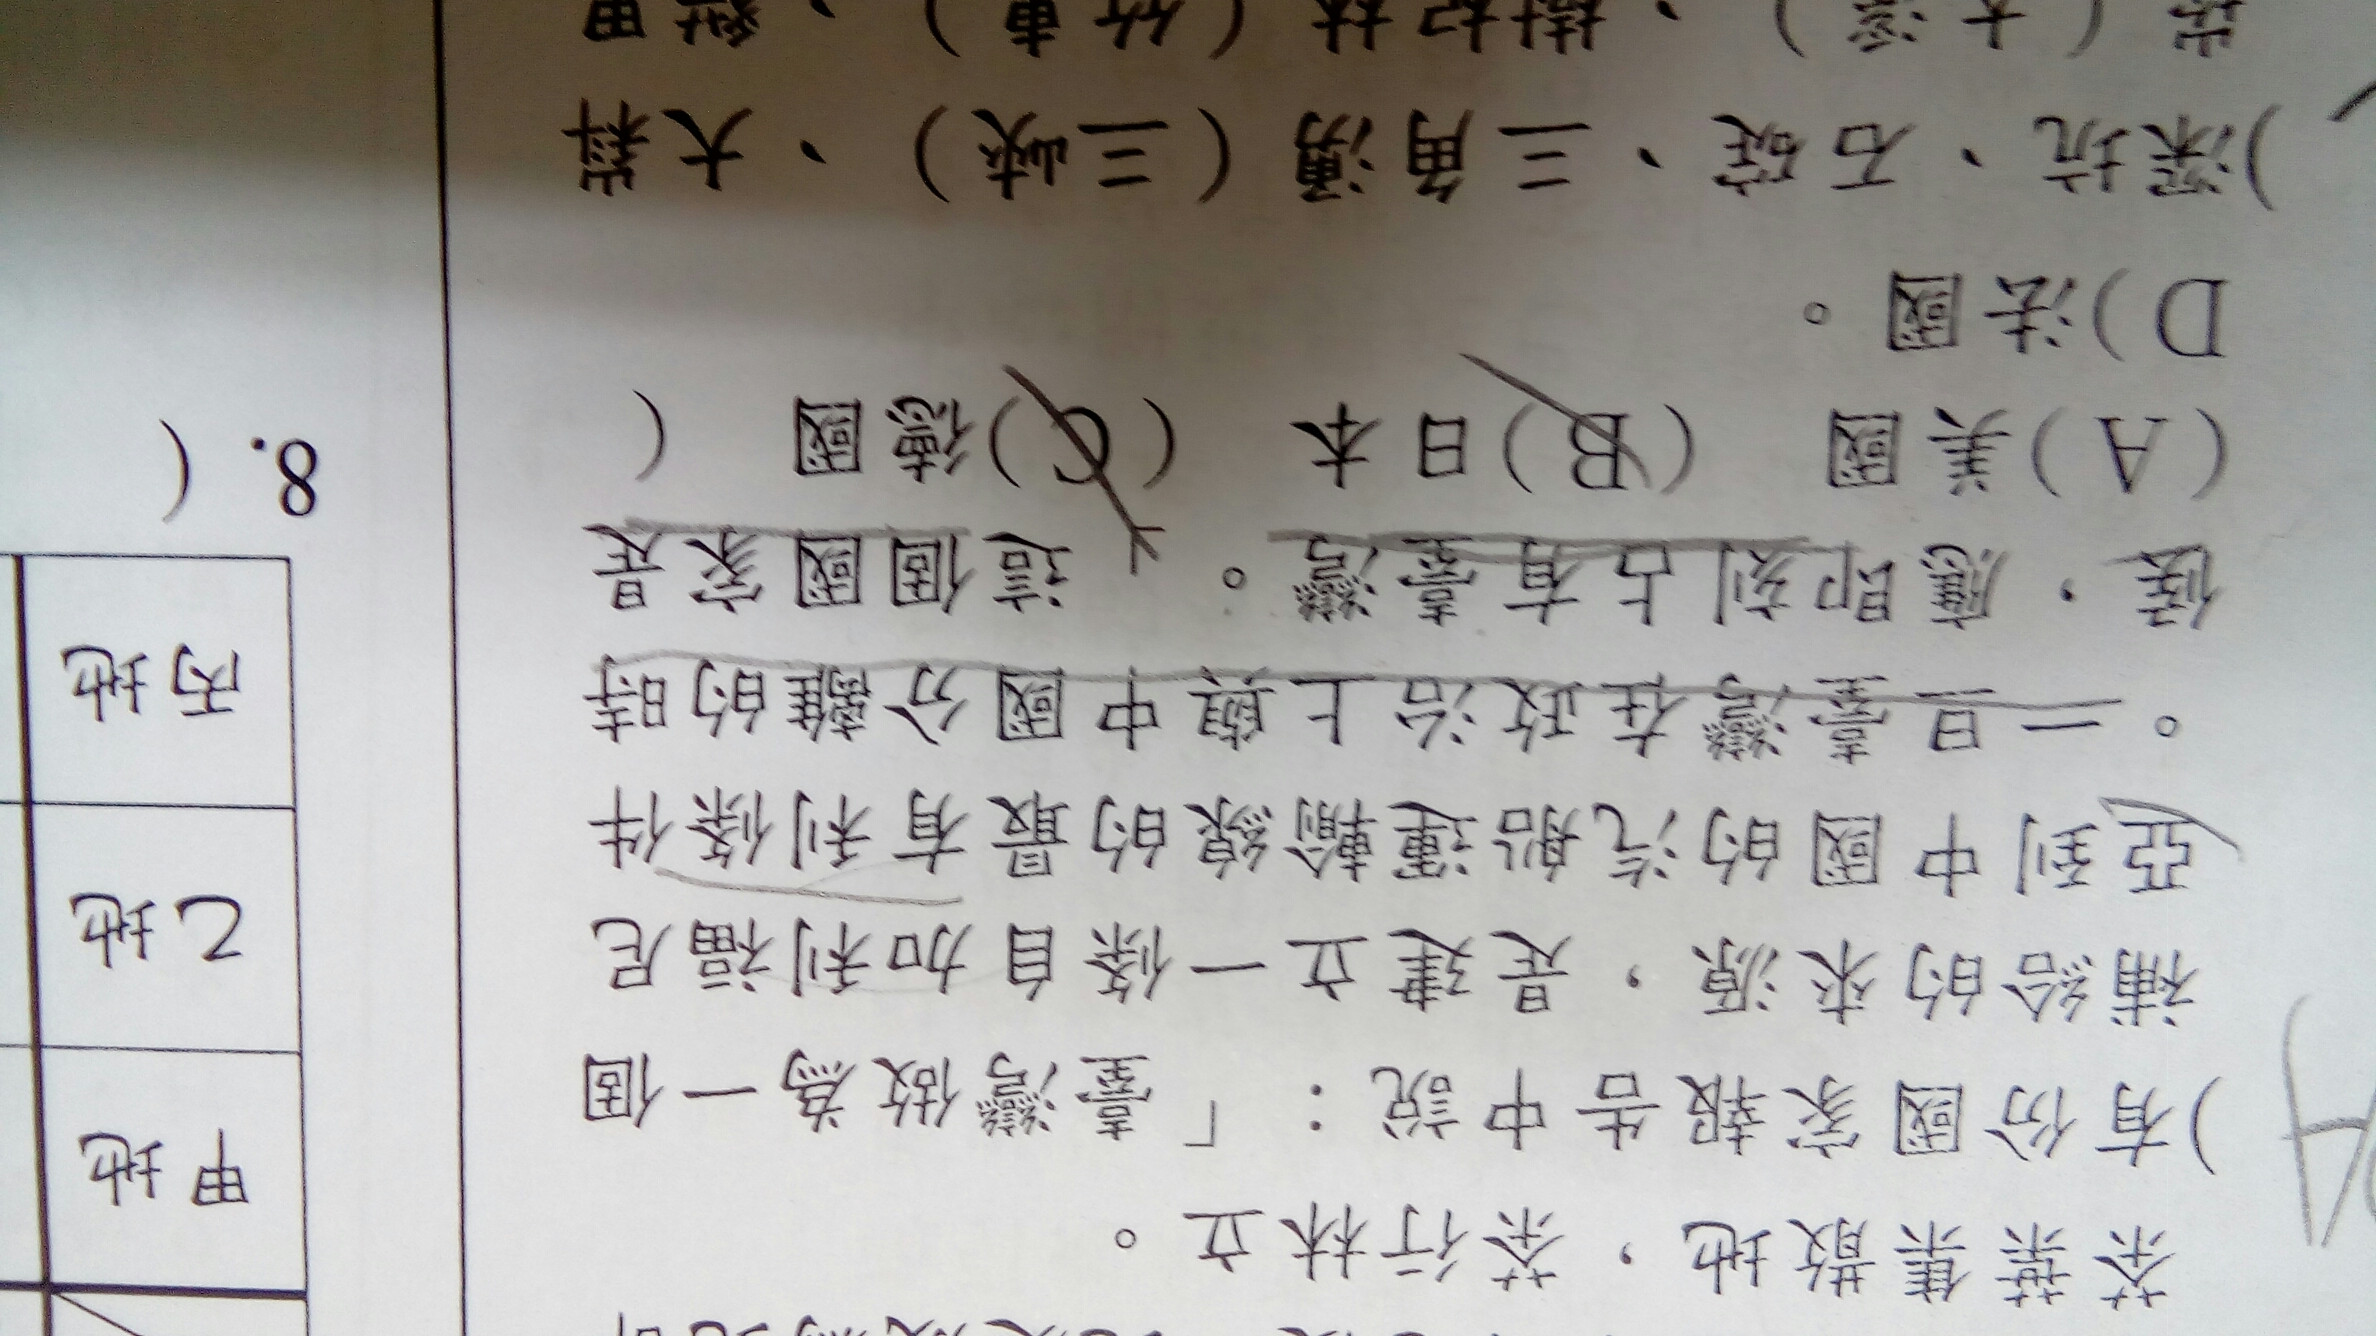 茶葉集散地，茶行林立。
)有份國家報告中說：「臺灣做為一個
補給的來源，是建立一條自加利福尼
亞到中國的汽船運輸線的最有利條件
。一旦臺灣在政治上與中國分離的時
候，應即刻占有臺灣。這個國家是
(A)美國 (B)日本 (C)德國 (
D)法國。
)深坑、石碇、三角湧(三峽)、大科
崁(大溪)、樹杞林(竹東)、
甲地
乙地
丙地
8. (